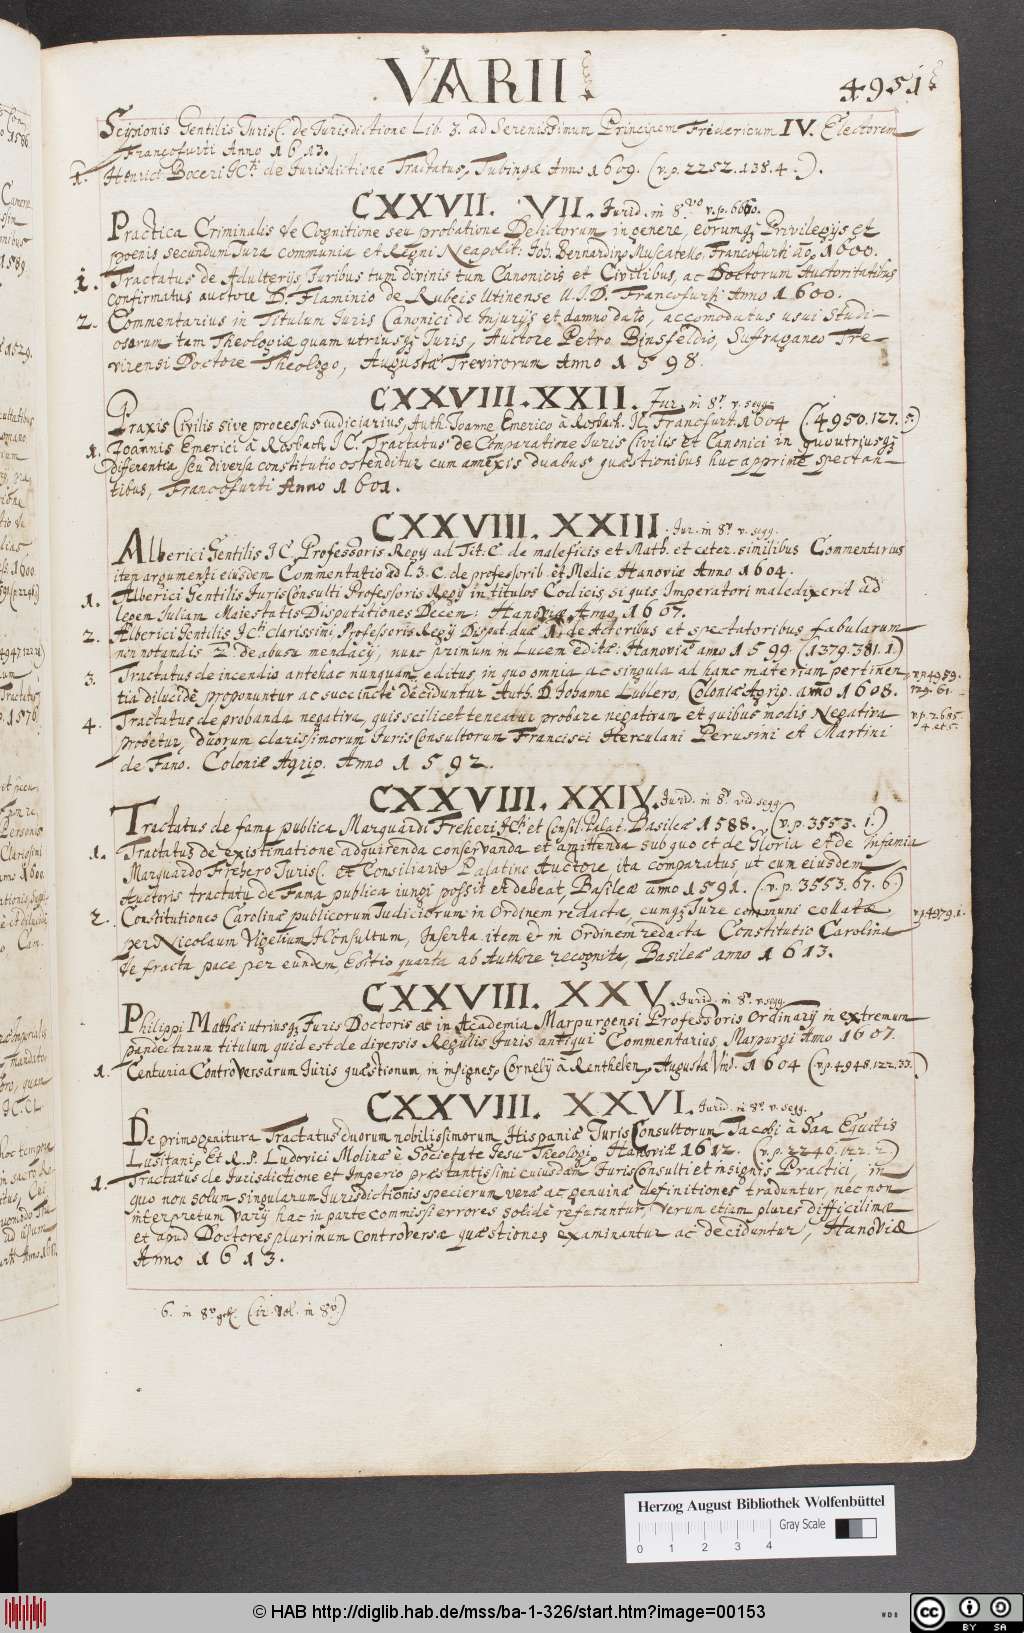 VARII
4951
Scipionis Gentilis JurisC. de Jurisdictione Lib. 3. ad Serenissimum Principem Fridericum IV. Electorem
Francofurti Anno 1613.
1. Henrici Boceri JCti de Jurisdictione Tractatus, Tubingæ Anno 1609. (v.p. 2252.138.4.).
CXXVII. VII. Jurid. in 8.vo v.p. 6660.
Practica Criminalis de Cognitione seu probatione Delictorum in genere, eorumq; Privilegijs et
poenis secundum Jura communia et Regni Neapolit: Joh. Bernardino Muscatello, Francofurti aō. 1600.
1. Tractatus de Adulterijs, Juribus tum divinis tum Canonicis et Civilibus, ac Doctorum Auctoritatibus
confirmatus auctore D. Flaminio de Rubeis Utinense U.J.D. Francofurti Anno 1600.
2. Commentarius in Titulum Juris Canonici de Injurijs et damno dato, accomodatus usui Studi-
osorum tam Theologiæ quam utriusq; Juris, Auctore Petro Binsfeldio, Suffraganeo Tre-
virensi Doctore Theologo, Augustæ Trevirorum Anno 1598.
CXXVIII. XXII. Jur. in 8.º v. seqq.
Praxis Civilis sive processus iudiciarius, Auth. Joanne Emerico à Rosbach. JC. Francofurt. 1604 (.4950.127.5.)
1. Joannis Emerici à Rosbach. J.C. Tractatus de Comparatione Juris Civilis et Canonici in quo utriusq;
differentia seu diversa constitutio ostenditur cum annexis duabus quæstionibus huc apprimè spectan-
tibus, Francofurti Anno 1601.
CXXVIII. XXIII. Jur. in 8.º v. seqq.
Alberici Gentilis JC. Professoris Regij ad Tit. C. de maleficis et Math. et ceter. similibus Commentarius
item argumenti eiusdem Commentatio ad l. 3. C. de professorib. et Medic. Hanoviæ Anno 1604.
1. Alberici Gentilis JurisConsulti Professoris Regij in titulos Codicis si quis Imperatori maledixerit ad
legem Juliam Maiestatis Disputationes Decem: Hanoviæ Anno 1607.
2. Alberici Gentilis JCti clarissimi, Professoris Regij Disput. duæ 1. de Actoribus et spectatoribus fabularum
non notandis 2. de abusu mendacij, nunc primum in Lucem editæ: Hanoviæ anno 1599. (1379.381.1.)
3. Tractatus de incendio antehac nunquam editus, in quo omnia ac singula ad hanc materiam pertinen-
v.p. 4959.
tia dilucidè proponuntur ac succinctè deciduntur Auth. D. Johanne Lublero, Coloniæ Agrip. anno 1608.
129.61.
4. Tractatus de probanda negativa, quis scilicet teneatur probare negativam et quibus modis Negativa
v.p. 2685.
probetur, duorum clarissimorum JurisConsultorum Francisci Herculani Perusini et Martini
4. et 5.
de Fano. Coloniæ Agrip. Anno 1592.
CXXVIII. XXIV. Jurid. in 8.º vid. seqq.
Tractatus de fama publica Marquardi Freheri JCti et Consil. Palat. Basileæ 1588. (v.p. 3553.1.)
1. Tractatus de existimatione adquirenda conservanda et amittenda sub quo et de Gloria et de Infamia
Marquardo Frehero JurisC. et Consiliario Palatino Auctore, ita comparatus, ut cum eiusdem
Auctoris tractatu de Fama publica iungi possit et debeat, Basileæ anno 1591. (.v.p. 3553.67.6.)
2. Constitutiones Carolinæ publicorum Judiciorum in Ordinem redactæ, cumq; Jure communi collatæ
v.p. 4979.1.
per Nicolaum Vigelium JConsultum, Inserta item et in Ordinem redacta Constitutio Carolina
de fracta pace per eundem, Editio quarta ab Authore recognita, Basileæ anno 1613.
CXXVIII. XXV. Jurid. in 8.º v. seqq.
Philippi Mathæi utriusq; Juris Doctoris ac in Academia Marpurgensi Professoris Ordinarij in extremum
pandectarum titulum quid est de diversis Regulis Juris antiqui Commentarius, Marpurgi Anno 1607.
1. Centuria Controversarum Juris quæstionum, in insignes, Cornelij à Renthelen, Augustæ Vind. 1604 (.v.p. 4948.122.33.)
CXXVIII. XXVI. Jurid. in 8.º v. seqq.
De primogenitura Tractatus duorum nobilissimorum Hispaniæ JurisConsultorum Jacobi à Saa Equitis
Lusitani, Et R.P. Ludovici Molinæ è Societate Jesu Theologi, Hanoviæ 1612. (v.p. 2246.122.2.)
1. Tractatus de Jurisdictione et Imperio præstantissimi cuiusdam JurisConsulti et insignis Practici, in
quo non solum singularum Jurisdictionis specierum veræ ac genuinæ definitiones traduntur, nec non
interpretum varij hac in parte commissi errores solidè refutantur, Verum etiam plures difficilimæ
et apud Doctores plurimum controversæ quæstiones examinantur ac deciduntur, Hanoviæ
Anno 1613.
6. in 8.º
Herzog August Bibliothek Wolfenbüttel
Gray Scale
0 1 2 3 4
© HAB http://diglib.hab.de/mss/ba-1-326/start.htm?image=00153
WDB
cc BY SA